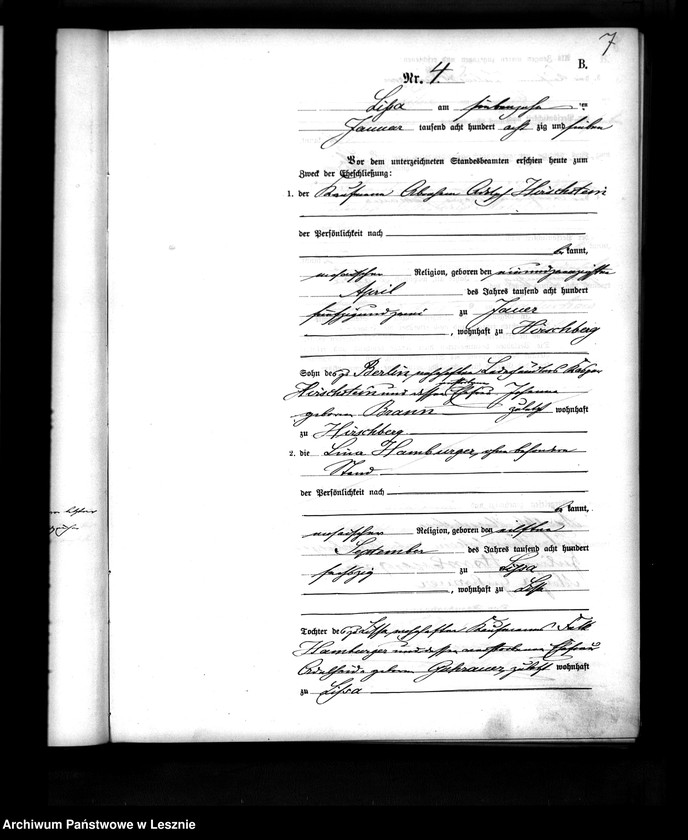 7
B.
Nr. 4.
Lissa am siebenzehn ten
Januar tausend acht hundert acht zig und sieben
Vor dem unterzeichneten Standesbeamten erschien heute zum
Zweck der Eheschließung:
1. der Kaufmann Abraham Adolf Hirschstein
der Persönlichkeit nach
be kannt,
mosaischer Religion, geboren den einundzwanzigsten
April des Jahres tausend acht hundert
fünfzigundzwei zu Jauer
, wohnhaft zu Hirschberg
Sohn des zu Berlin wohnhaften Lederhändlers
Hirschstein und dessen verstorbenen Ehefrau Johanna
geboren Braun zuletzt wohnhaft
zu Hirschberg
2. die Lina Hamburger, ohne besonderen
Stand
der Persönlichkeit nach
be kannt,
mosaischer Religion, geboren den eilften
September des Jahres tausend acht hundert
sechszig zu Lissa
, wohnhaft zu Lissa
Tochter des zu Lissa wohnhaften Kaufmanns
Hamburger und dessen verstorbenen Ehefrau
geboren zuletzt wohnhaft
zu Lissa
Archiwum Państwowe w Lesznie